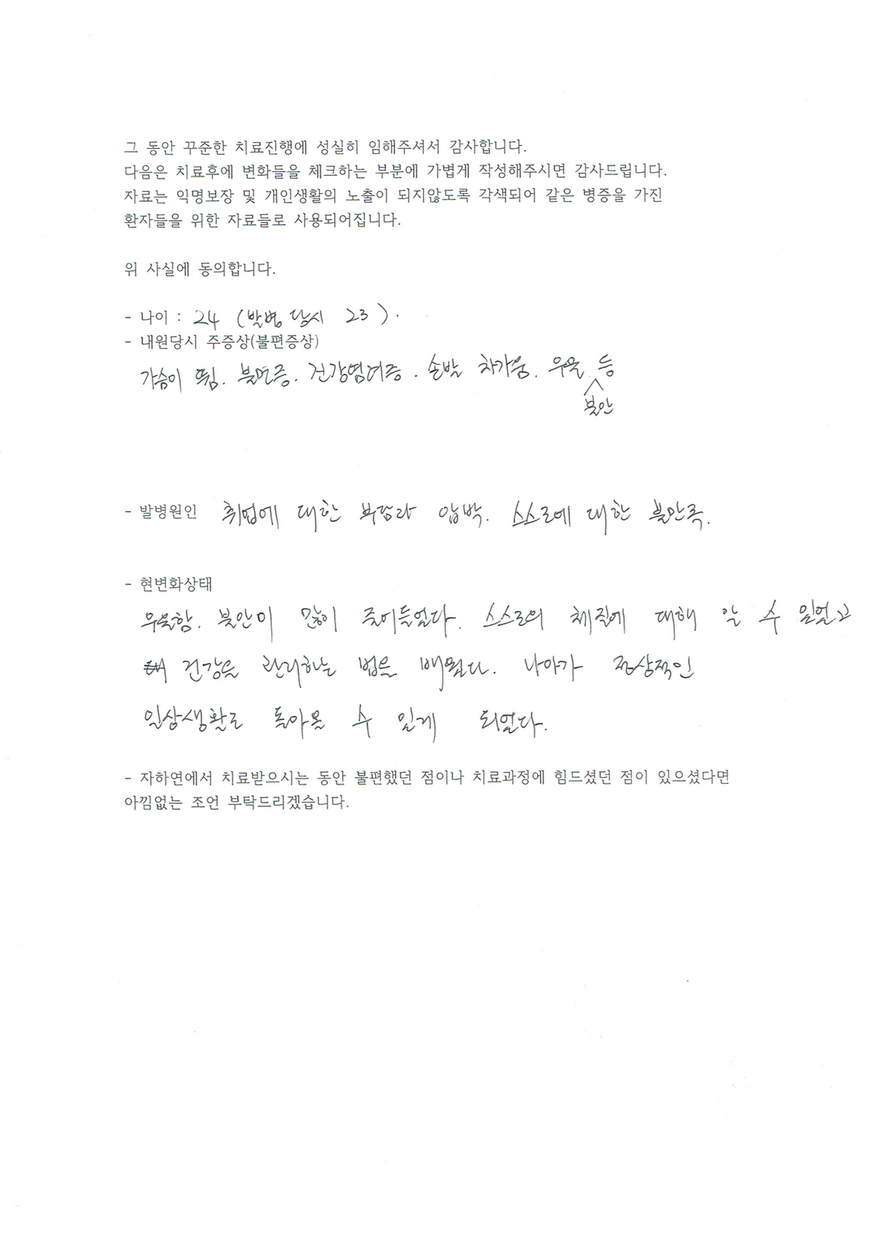 그 동안 꾸준한 치료진행에 성실히 임해주셔서 감사합니다.
다음은 치료후에 변화들을 체크하는 부분에 가볍게 작성해주시면 감사드립니다.
자료는 익명보장 및 개인생활의 노출이 되지않도록 각색되어 같은 병증을 가진
환자들을 위한 자료들로 사용되어집니다.
위 사실에 동의합니다.
- 나이 : 24 (발병 당시 23).
- 내원당시 주증상(불편증상)
가슴이 뜀. 불면증. 건강염려증. 손발 차가움. 우울. 등
불안
- 발병원인 취업에 대한 부담과 압박. 스스로에 대한 불만족.
- 현변화상태
우울함. 불안이 많이 줄어들었다. 스스로의 체질에 대해 알 수 있었고
건강을 관리하는 법을 배웠다. 나아가 정상적인
일상생활로 돌아올 수 있게 되었다.
- 자하연에서 치료받으시는 동안 불편했던 점이나 치료과정에 힘드셨던 점이 있으셨다면
아낌없는 조언 부탁드리겠습니다.